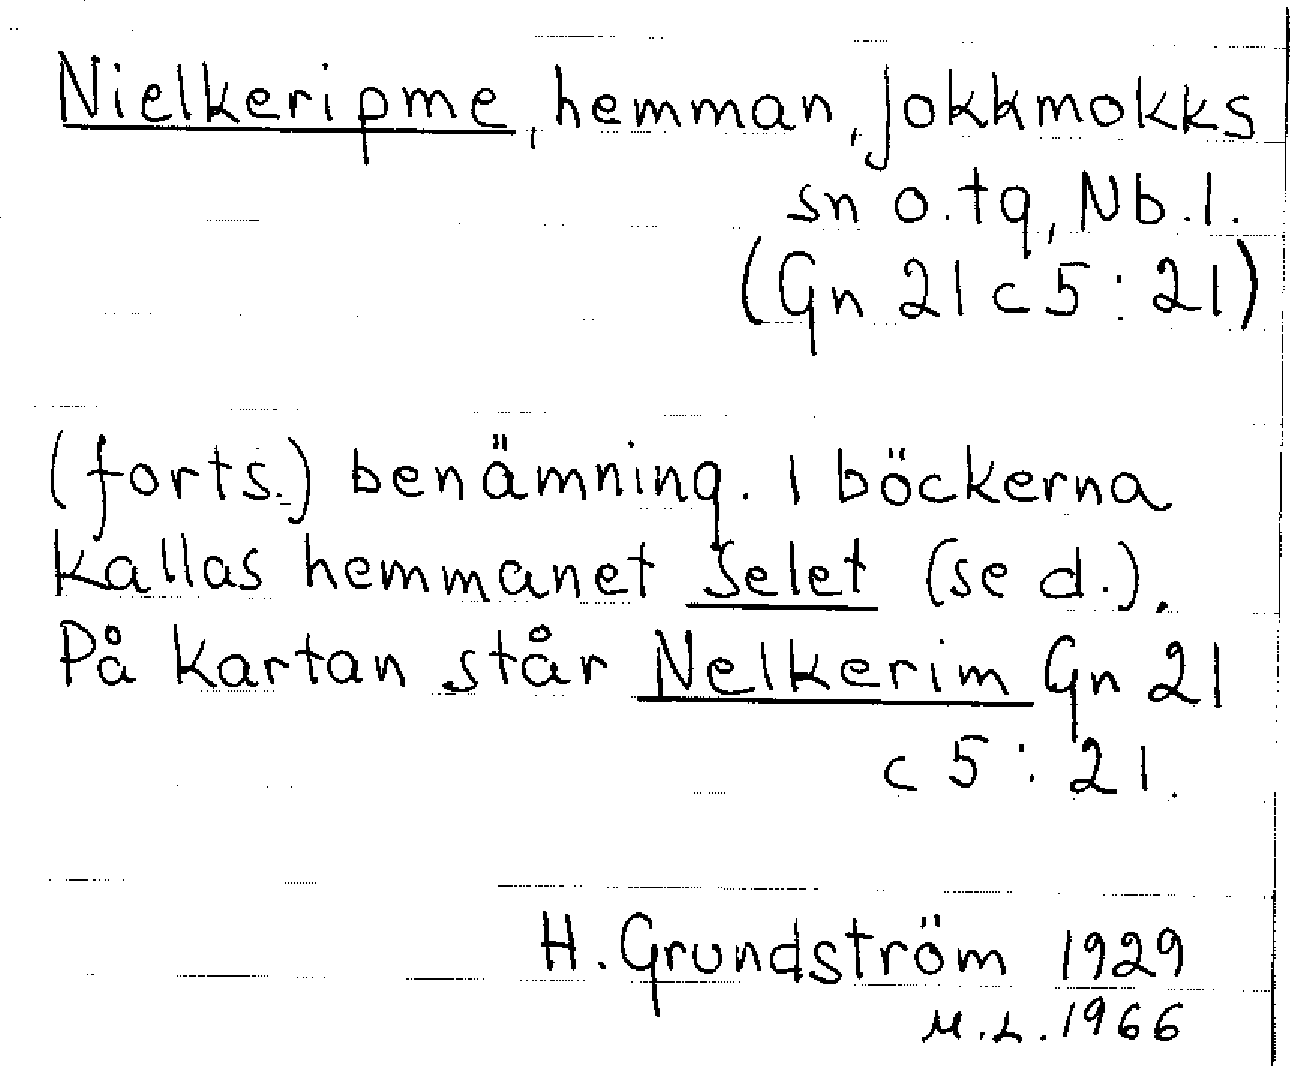 Nielkeripme, hemman, Jokkmokks
sn o. tg, Nb. l.
(Gn 21 c 5 : 21)
(forts.) benämning. I böckerna
kallas hemmanet Selet (se d.).
På kartan står Nelkerim Gn 21
c 5 : 21.
H. Grundström 1929
M. L. 1966